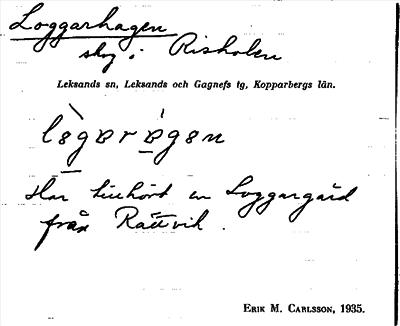 Loggarhagen
skog i Risholen
Leksands sn, Leksands och Gagnefs tg, Kopparbergs län.
lògarágen
Har tillhört en Loggargård
från Rättvik.
ERIK M. CARLSSON, 1935.